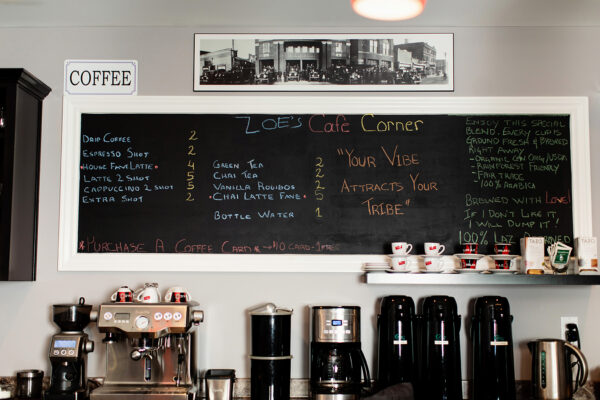 COFFEE
ZOE's Cafe Corner
DRIP COFFEE 2
ESPRESSO SHOT 2
*HOUSE FAVE LATTE* 4
LATTE 2 SHOT 5
CAPPUCCINO 2 SHOT 5
EXTRA SHOT 2
GREEN TEA 2
CHAI TEA 2
VANILLA ROOIBOS 2
*CHAI LATTE FAVE* 5
BOTTLE WATER 1
"YOUR VIBE
ATTRACTS YOUR
TRIBE"
ENJOY THIS SPECIAL
BLEND. EVERY CUP IS
GROUND FRESH & BREWED
RIGHT AWAY
-RAINFOREST FRIENDLY
-FAIR TRADE
-100% ARABICA
BREWED WITH LOVE!
IF I DON'T LIKE IT
I WILL DUMP IT!
100%
*PURCHASE A COFFEE CARD*
TAZO
TAZO